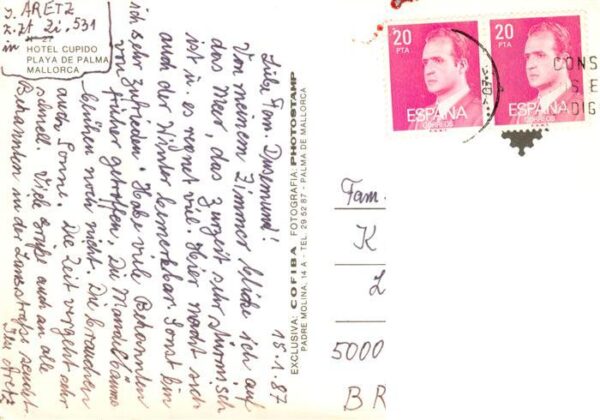 J. ARETZ
z.Zt. Zi. 531
in HOTEL CUPIDO
PLAYA DE PALMA
MALLORCA
15.1.87
Liebe Fam. Dusmund!
Von meinem Zimmer blicke ich auf
das Meer, das zurzeit sehr stürmisch
ist u. es regnet viel. Hier macht sich
auch der Winter bemerkbar. Sonst bin
ich sehr zufrieden. Habe viele Bekannten
von früher getroffen. Die Mandelbäume
blühen noch nicht. Die brauchen
auch Sonne. Die Zeit vergeht sehr
schnell. Viele Grüße auch an alle
Bekannten in der Straße sendet
Ihr Aretz
EXCLUSIVA: COFIBA FOTOGRAFIA: PHOTOSTAMP
PADRE MOLINA, 14 A - TEL. 29 52 87 - PALMA DE MALLORCA
20
PTA
ESPAÑA
CORREOS
20
PTA
ESPAÑA
CORREOS
CONS
SE
DIG
Fam.
K
L
5000
BR